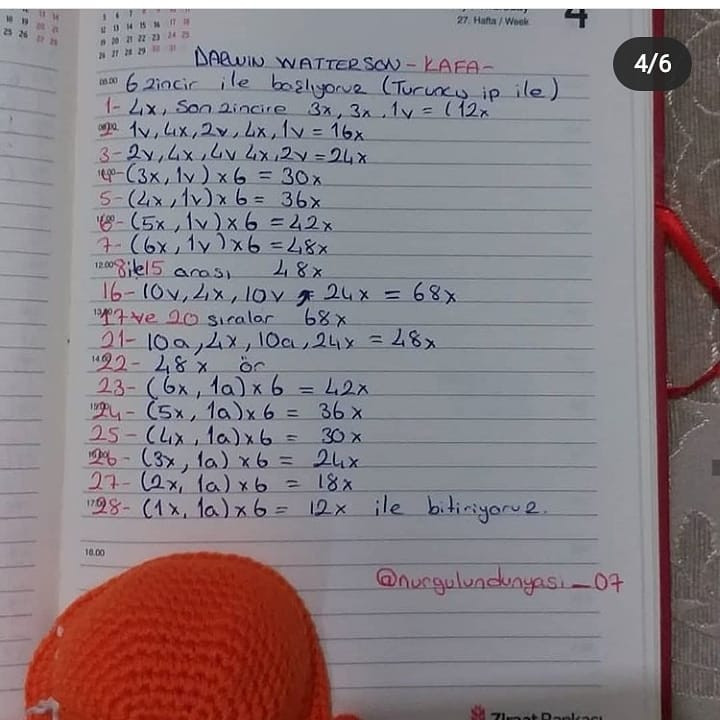 27. Hafta / Week
4
4/6
DARWIN WATTERSON - KAFA -
08.00 6 zincir ile başlıyoruz (Turuncu ip ile)
1- 4x, Son zincire 3x, 3x, 1v = (12x
1v, 4x, 2v, 4x, 1v = 16x
3- 2v, 4x, 4v 4x, 2v = 24x
(3x, 1v) x 6 = 30x
5- (4x, 1v) x 6 = 36x
6- (5x, 1v) x 6 = 42x
7- (6x, 1v) x 6 = 48x
12.00 8 ile 15 arası 48x
16- 10v, 4x, 10v, 24x = 68x
17 ve 20 sıralar 68x
21- 10a, 4x, 10a, 24x = 48x
22- 48x ör
23- (6x, 1a) x 6 = 42x
24- (5x, 1a) x 6 = 36x
25- (4x, 1a) x 6 = 30x
26- (3x, 1a) x 6 = 24x
27- (2x, 1a) x 6 = 18x
28- (1x, 1a) x 6 = 12x ile bitiriyoruz.
18.00
@nurgulundunyasi_07
Ziraat Bankası